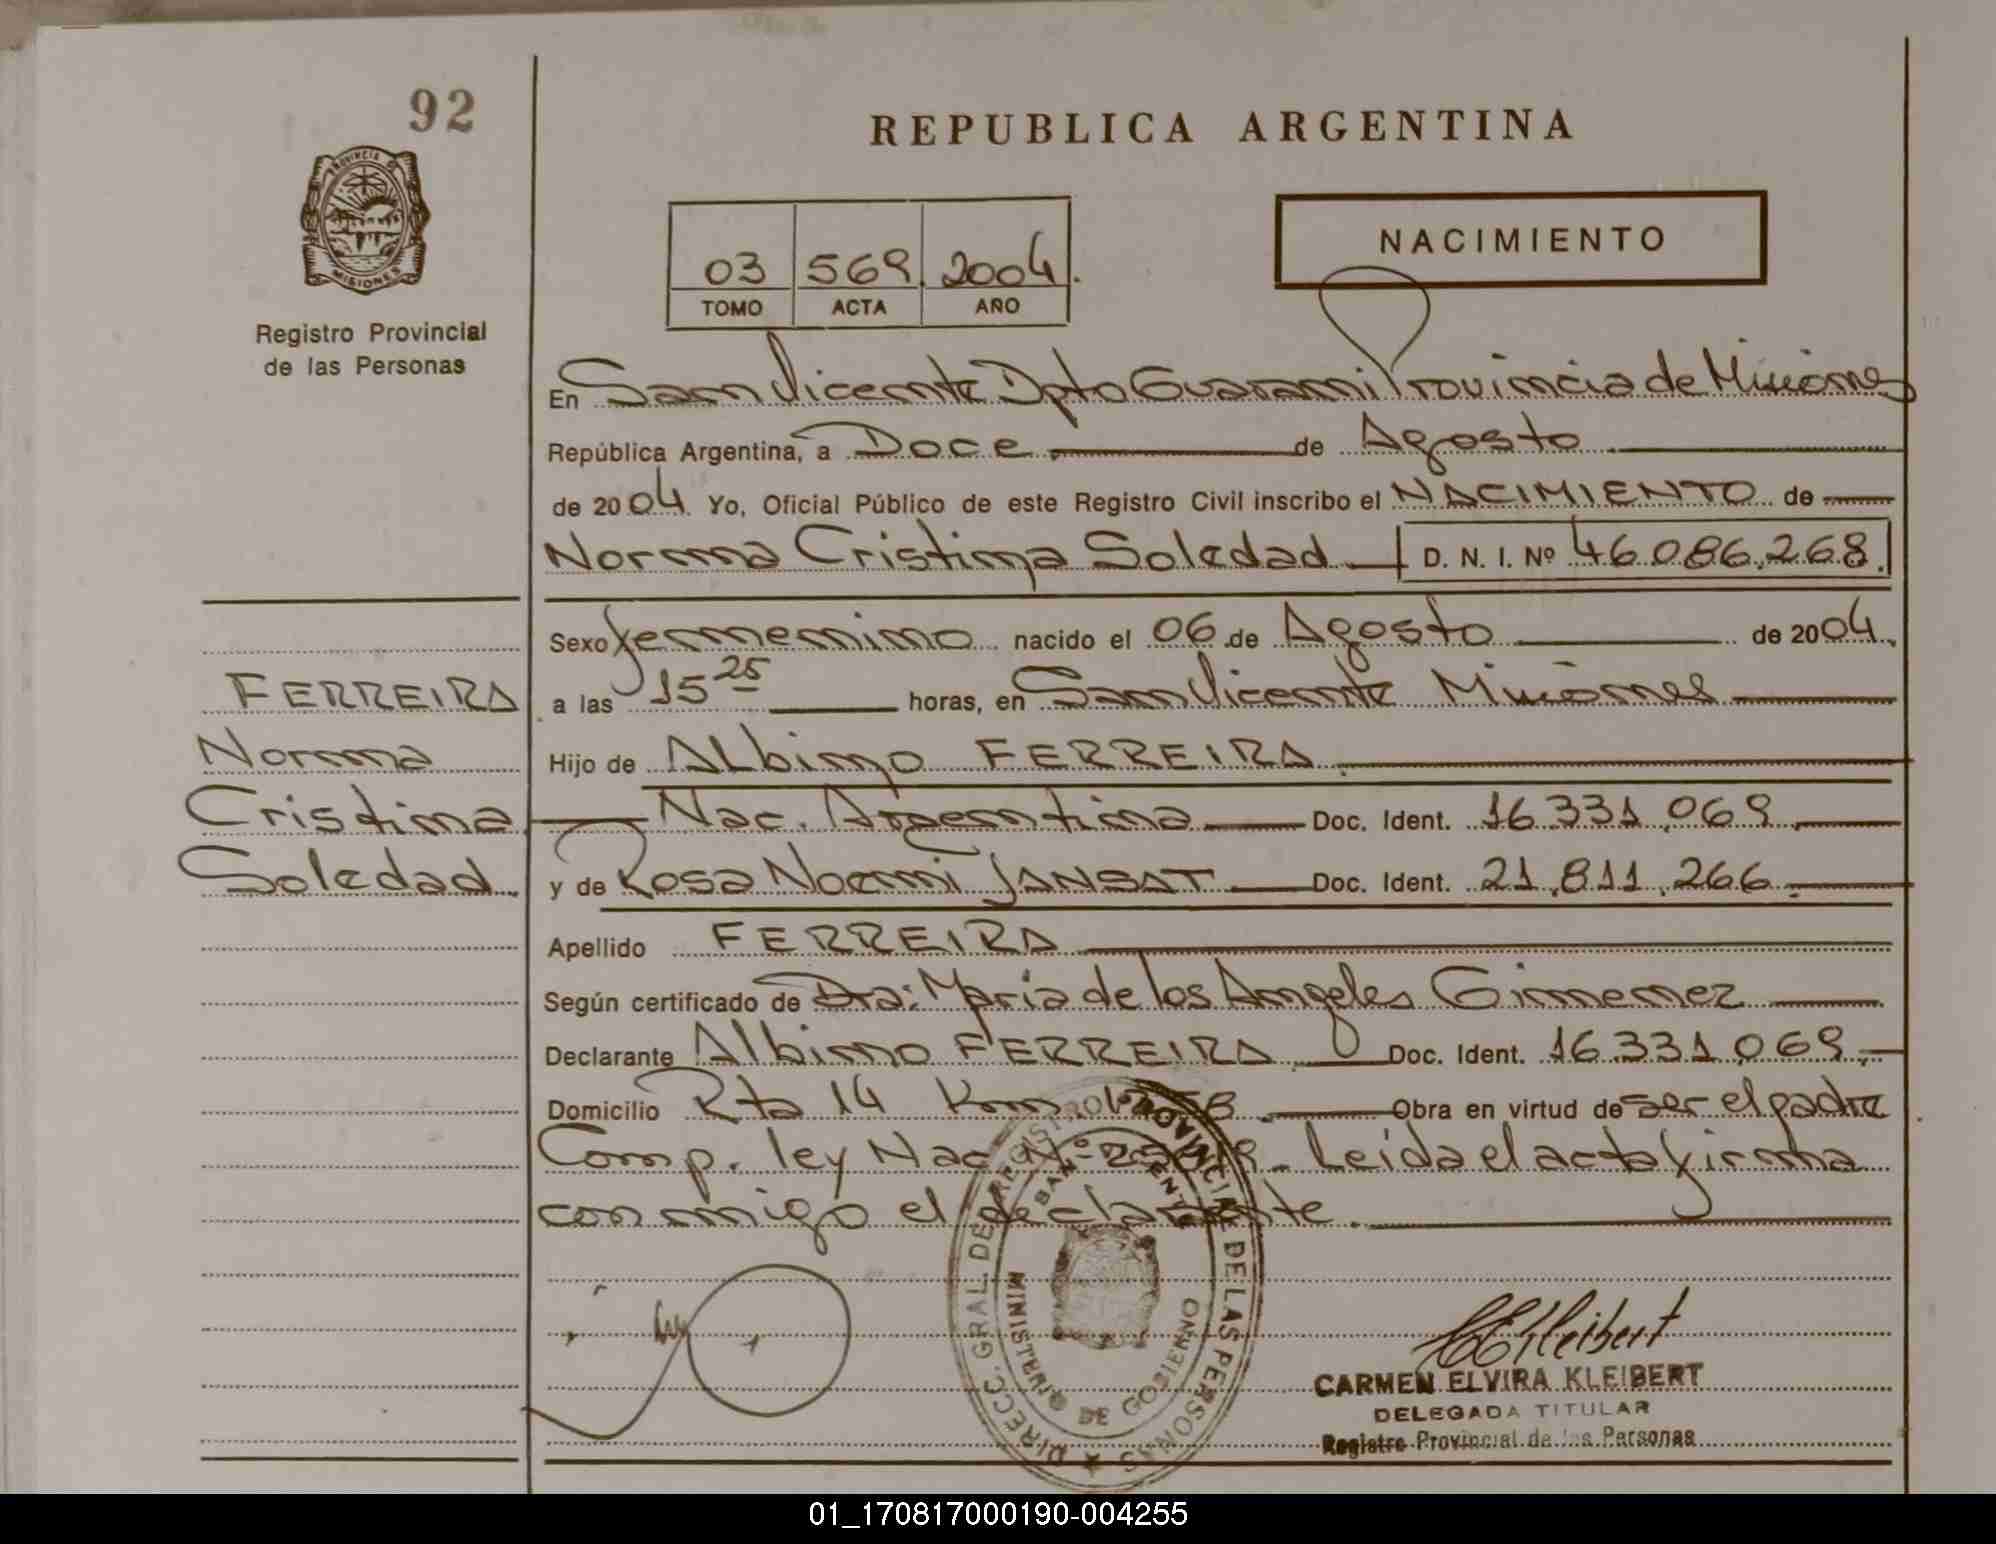 92
REPUBLICA ARGENTINA
PROVINCIA DE
MISIONES
Registro Provincial
de las Personas
NACIMIENTO
03 569 2004.
TOMO ACTA AÑO
En San Vicente Dpto Guarani Provincia de Misiones
República Argentina, a Doce de Agosto
de 2004 Yo, Oficial Público de este Registro Civil inscribo el NACIMIENTO de
Norma Cristina Soledad D. N. I. Nº 46.086.268.
Sexo femenino nacido el 06 de Agosto de 2004
a las 15 25 horas, en San Vicente Misiones
Hijo de ALbino FERREIRA
Nac. Argentina Doc. Ident. 16.331.069
y de Rosa Noemi JANSAT Doc. Ident. 21.811.266
Apellido FERREIRA
Según certificado de Dra: Maria de los Angeles Gimenez
Declarante Albino FERREIRA Doc. Ident. 16.331.069
Domicilio Rta 14 Km Obra en virtud de ser el padre
Comp. ley Nac. Nº Leida el acta firma
conmigo el declarante.
FERREIRA
Norma
Cristina
Soledad
DIRECC. GRAL. DEL REGISTRO PROVINCIAL DE LAS PERSONAS
MINISTERIO DE GOBIERNO
SAN VICENTE
CEKleibert
CARMEN ELVIRA KLEIBERT
DELEGADA TITULAR
Registro Provincial de las Personas
01_170817000190-004255